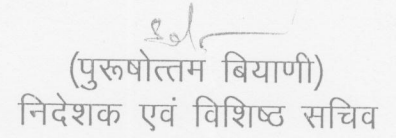 (पुरूषोत्तम बियाणी)
निदेशक एवं विशिष्ठ सचिव